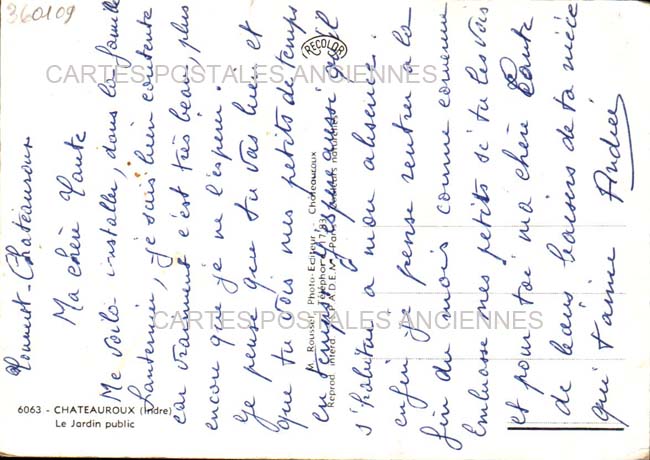 360109
CARTES POSTALES ANCIENNES
CARTES POSTALES ANCIENNES
RECOLOR
M. Roussel, Photo-Editeur - Chateauroux
Téléphone
Reprod. interd.
6063 - CHATEAUROUX (Indre)
Le Jardin public
Chateauroux
Ma chère Tante
Me voilà installée, dans la famille
Lanternier, je suis bien contente
car vraiment c'est très beau, plus
encore que je ne l'espérai.
Je pense que tu vas bien et
que tu vois mes petits de temps
en temps j'espère aussi qu'il
s'habitue a mon absence.
enfin je pense rentrer à la
fin du mois comme convenu
Embrasse mes petits si tu les vois
et pour toi ma chère Tante
de bons baisers de ta nièce
qui t'aime Andrée